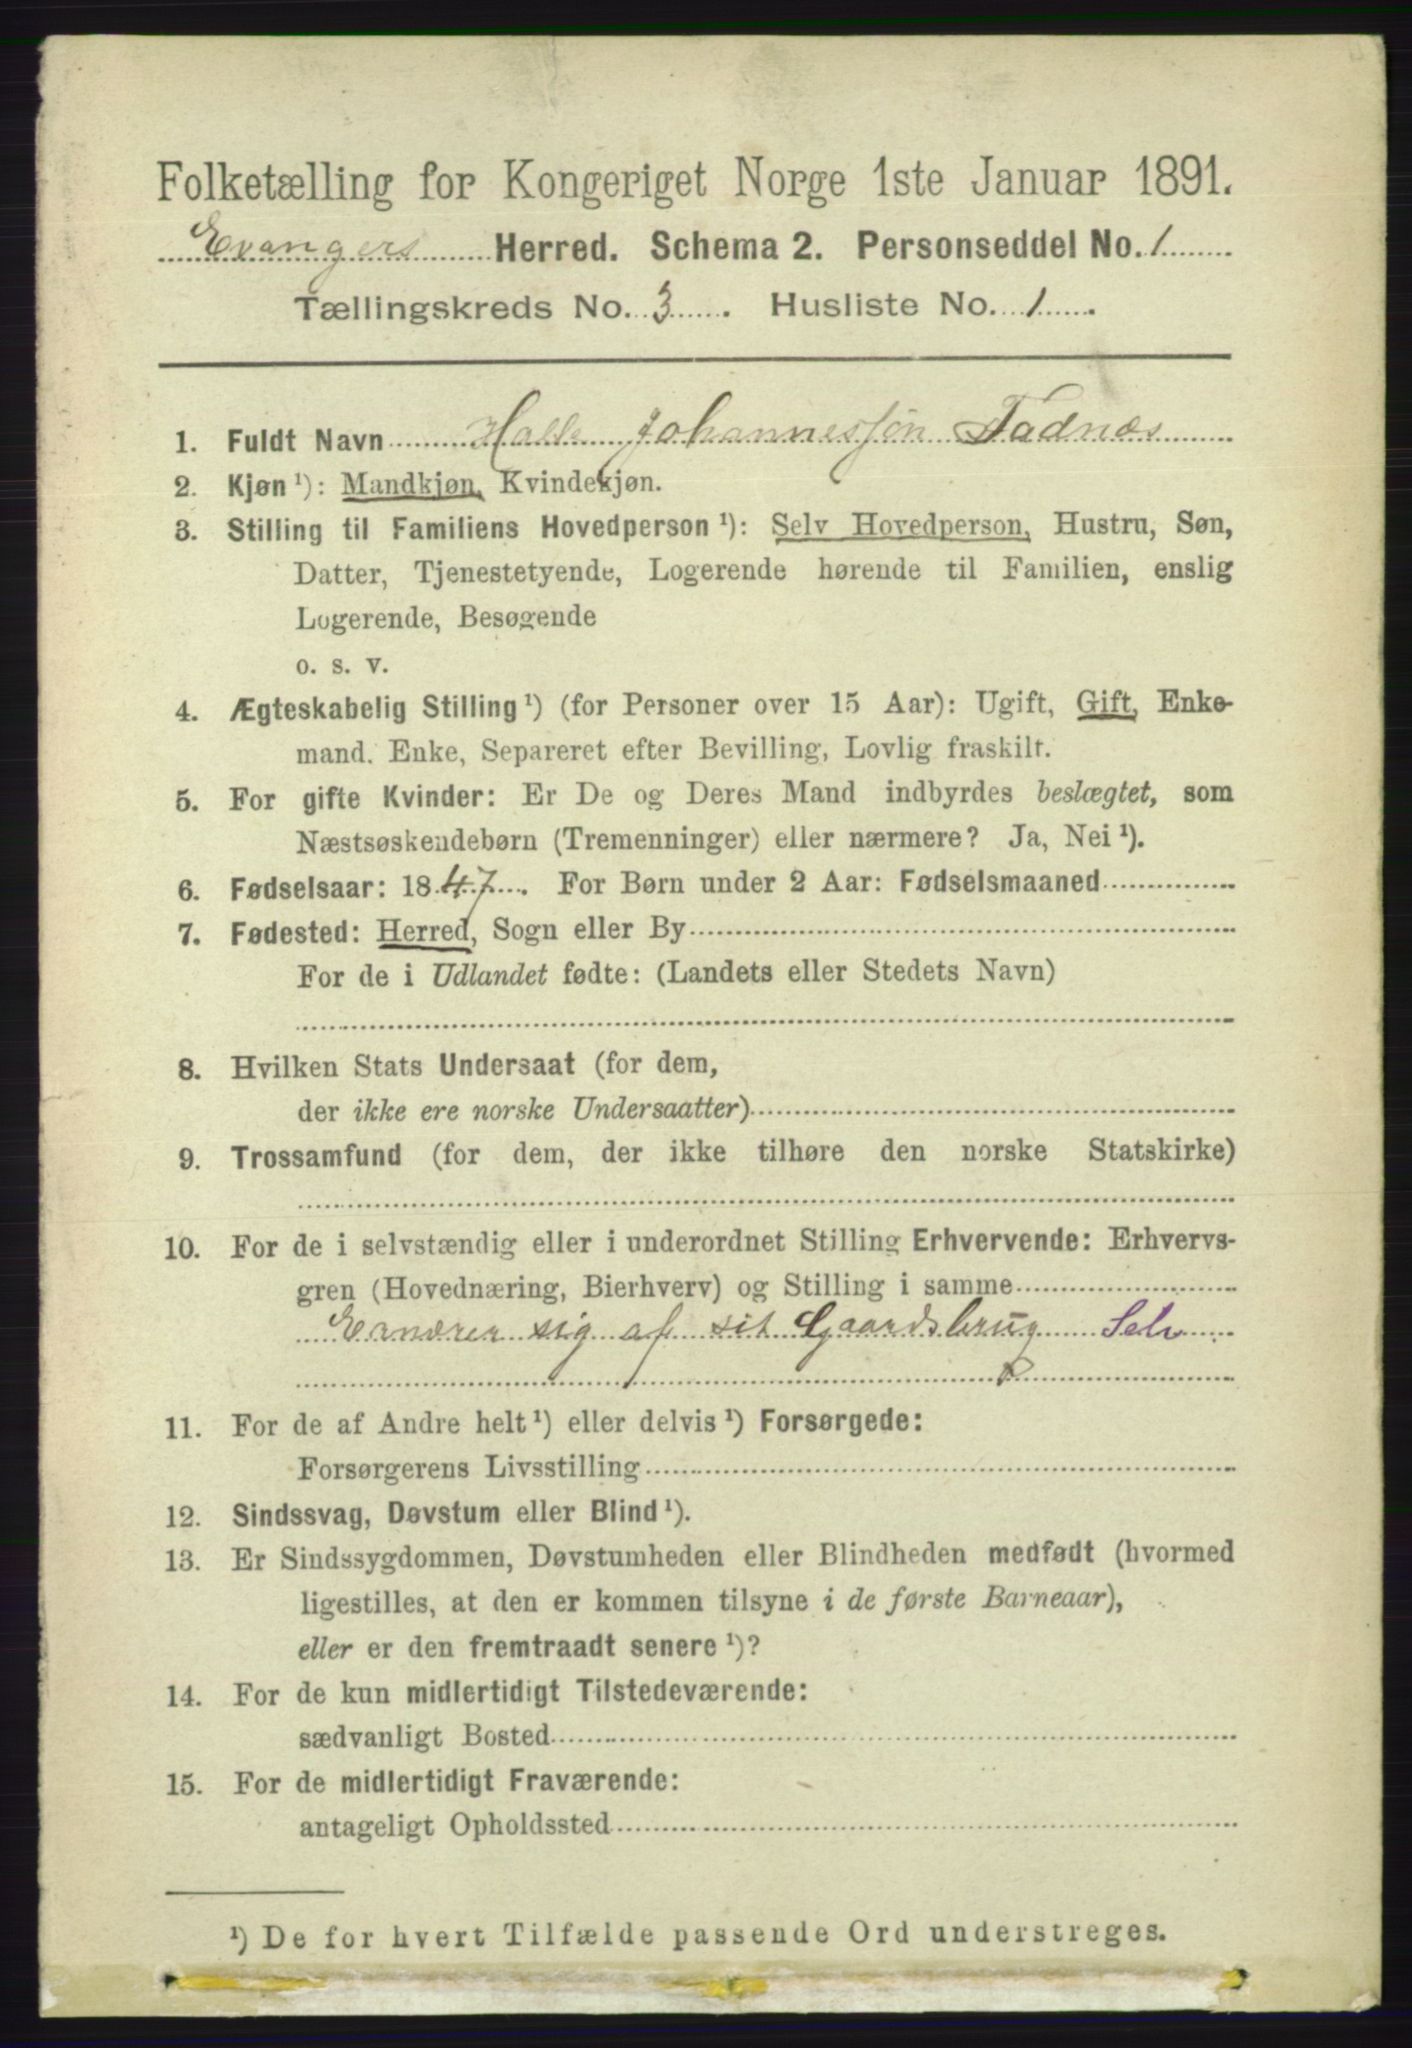 Folketælling for Kongeriget Norge 1ste Januar 1891.
Evangers Herred. Schema 2. Personseddel No. 1
Tællingskreds No. 3. Husliste No. 1.
1. Fuldt Navn Halle Johannessøn Fadnæs
2. Kjøn ¹): Mandkjøn, Kvindekjøn.
3. Stilling til Familiens Hovedperson ¹): Selv Hovedperson, Hustru, Søn,
Datter, Tjenestetyende, Logerende hørende til Familien, enslig
Logerende, Besøgende
o. s. v.
4. Ægteskabelig Stilling ¹) (for Personer over 15 Aar): Ugift, Gift, Enke-
mand, Enke, Separeret efter Bevilling, Lovlig fraskilt.
5. For gifte Kvinder: Er De og Deres Mand indbyrdes beslægtet, som
Næstsøskendebørn (Tremenninger) eller nærmere? Ja, Nei ¹).
6. Fødselsaar: 1847. For Børn under 2 Aar: Fødselsmaaned
7. Fødested: Herred, Sogn eller By
For de i Udlandet fødte: (Landets eller Stedets Navn)
8. Hvilken Stats Undersaat (for dem,
der ikke ere norske Undersaatter)
9. Trossamfund (for dem, der ikke tilhøre den norske Statskirke)
10. For de i selvstændig eller i underordnet Stilling Erhvervende: Erhvervs-
gren (Hovednæring, Bierhverv) og Stilling i samme
Ernærer sig af sit Gaardsbrug Selv
11. For de af Andre helt ¹) eller delvis ¹) Forsørgede:
Forsørgerens Livsstilling
12. Sindssvag, Døvstum eller Blind ¹).
13. Er Sindssygdommen, Døvstumheden eller Blindheden medfødt (hvormed
ligestilles, at den er kommen tilsyne i de første Barneaar),
eller er den fremtraadt senere ¹)?
14. For de kun midlertidigt Tilstedeværende:
sædvanligt Bosted
15. For de midlertidigt Fraværende:
antageligt Opholdssted
¹) De for hvert Tilfælde passende Ord understreges.